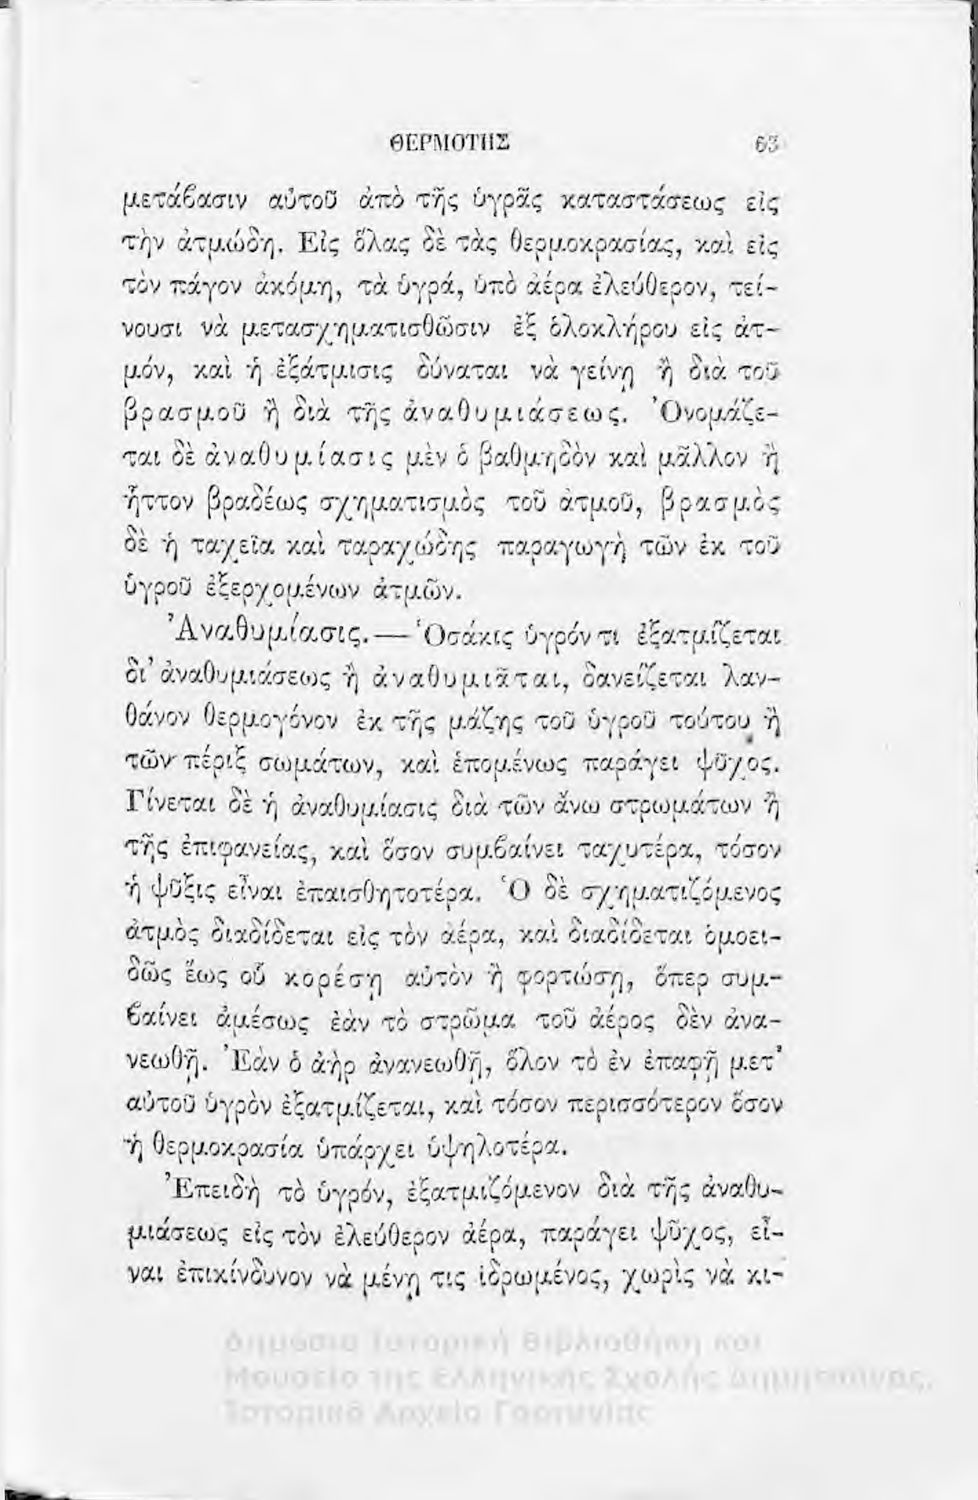 ΘΕΡΜΟΤΗΣ 63
μετάβασιν αὐτοῦ ἀπὸ τῆς ὑγρᾶς καταστάσεως εἰς
τὴν ἀτμώδη. Εἰς ὅλας δὲ τὰς θερμοκρασίας, καὶ εἰς
τὸν πάγον ἀκόμη, τὰ ὑγρά, ὑπὸ ἀέρα ἐλεύθερον, τεί-
νουσι νὰ μετασχηματισθῶσιν ἐξ ὁλοκλήρου εἰς ἀτ-
μόν, καὶ ἡ ἐξάτμισις δύναται νὰ γείνῃ ἢ διὰ τοῦ
βρασμοῦ ἢ διὰ τῆς ἀναθυμιάσεως. Ὀνομάζε-
ται δὲ ἀναθυμίασις μὲν ὁ βαθμηδὸν καὶ μᾶλλον ἢ
ἧττον βραδέως σχηματισμὸς τοῦ ἀτμοῦ, βρασμὸς
δὲ ἡ ταχεῖα καὶ ταραχώδης παραγωγὴ τῶν ἐκ τοῦ
ὑγροῦ ἐξερχομένων ἀτμῶν.
Ἀναθυμίασις.— Ὁσάκις ὑγρόν τι ἐξατμίζεται
δι' ἀναθυμιάσεως ἢ ἀναθυμιᾶται, δανείζεται λαν-
θάνον θερμογόνον ἐκ τῆς μάζης τοῦ ὑγροῦ τούτου ἢ
τῶν πέριξ σωμάτων, καὶ ἑπομένως παράγει ψῦχος.
Γίνεται δὲ ἡ ἀναθυμίασις διὰ τῶν ἄνω στρωμάτων ἢ
τῆς ἐπιφανείας, καὶ ὅσον συμβαίνει ταχυτέρα, τόσον
ἡ ψῦξις εἶναι ἐπαισθητοτέρα. Ὁ δὲ σχηματιζόμενος
ἀτμὸς διαδίδεται εἰς τὸν ἀέρα, καὶ διαδίδεται ὁμοει-
δῶς ἕως οὗ κορέσῃ αὐτὸν ἢ φορτώσῃ, ὅπερ συμ-
βαίνει ἀμέσως ἐὰν τὸ στρῶμα τοῦ ἀέρος δὲν ἀνα-
νεωθῇ. Ἐὰν ὁ ἀὴρ ἀνανεωθῇ, ὅλον τὸ ἐν ἐπαφῇ μετ'
αὐτοῦ ὑγρὸν ἐξατμίζεται, καὶ τόσον περισσότερον ὅσον
ἡ θερμοκρασία ὑπάρχει ὑψηλοτέρα.
Ἐπειδὴ τὸ ὑγρόν, ἐξατμιζόμενον διὰ τῆς ἀναθυ-
μιάσεως εἰς τὸν ἐλεύθερον ἀέρα, παράγει ψῦχος, εἶ-
ναι ἐπικίνδυνον νὰ μένῃ τις ἱδρωμένος, χωρὶς νὰ κι-
Δημόσια Ιστορική Βιβλιοθήκη και
Μουσείο της Ελληνικής Σχολής Δημητσάνας,
Ιστορικό Αρχείο Γορτυνίας